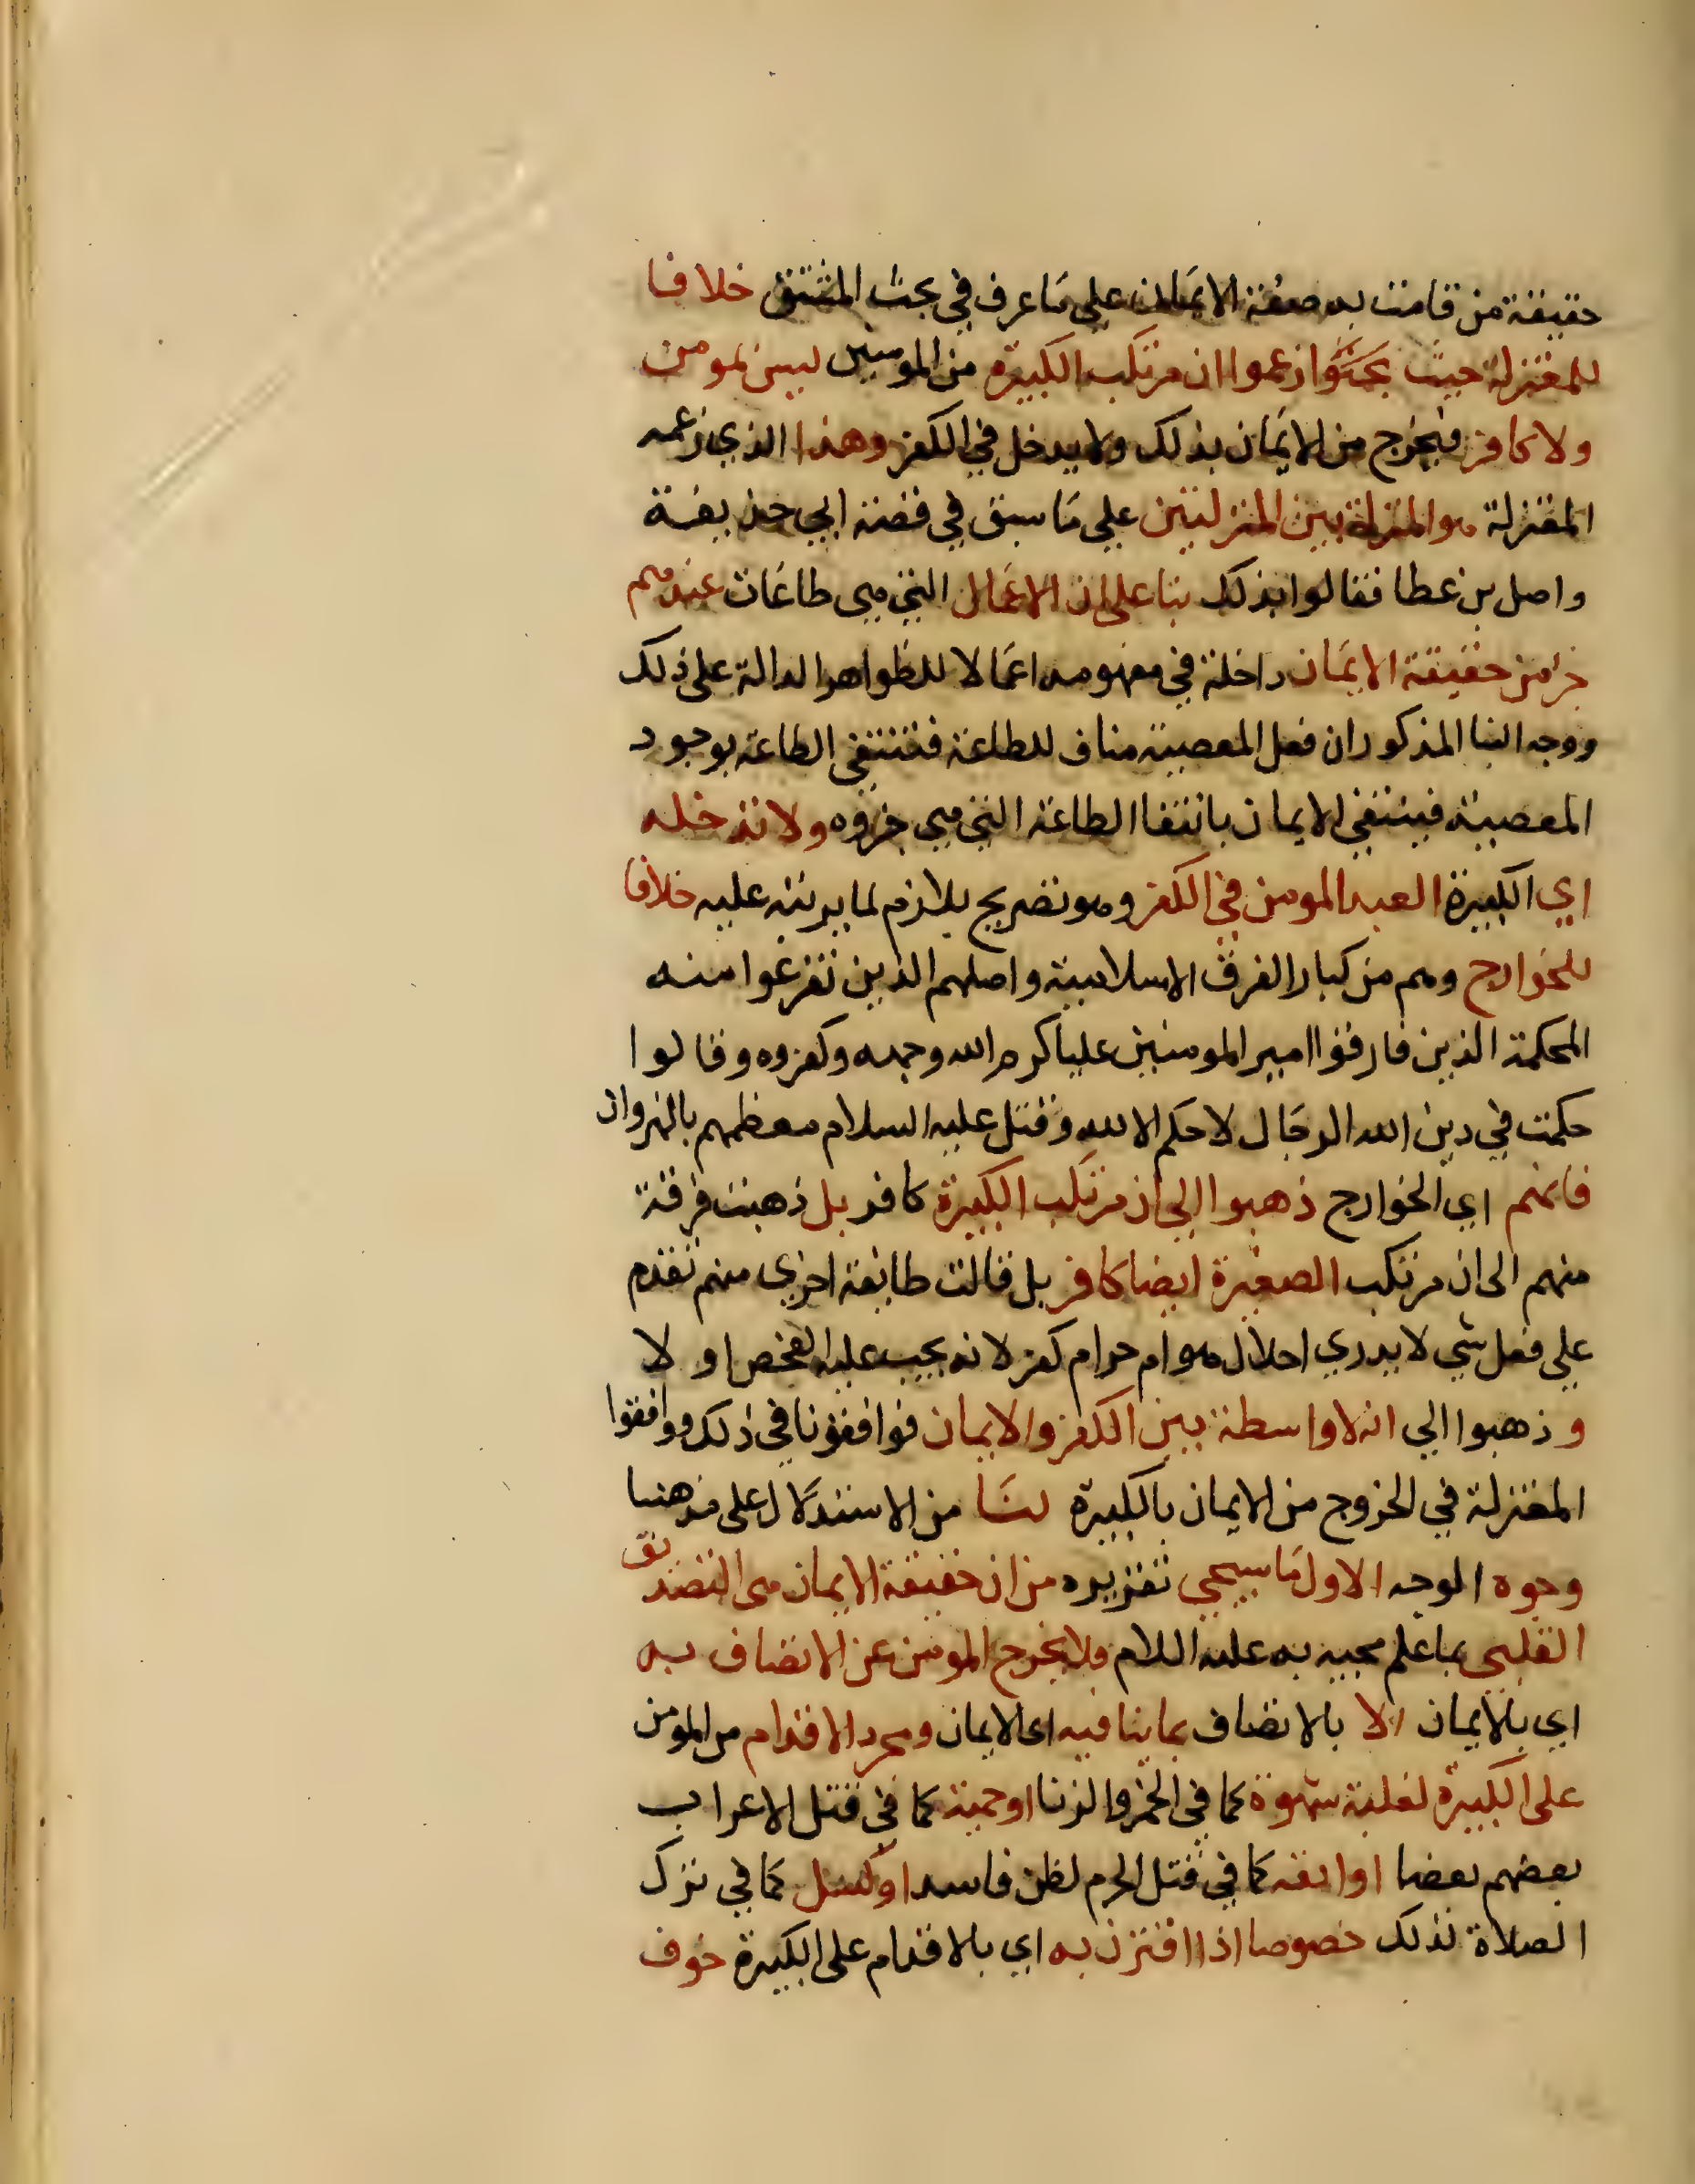 حقيقة من قامت به صفة الايمان على ما عرف في بحث المشتق خلافا
للمعتزلة حيث زعموا ان مرتكب الكبيرة من المومنين ليس بمومن
ولا كافر فيخرج من الايمان بذلك ولا يدخل في الكفر وهذا الذي زعمه
المعتزلة هو المنزلة بين المنزلتين على ما سبق في قصة ابي حذيفة
واصل بن عطا فقالوا بذلك بنا على ان الاعمال التي هي طاعات عندهم
جز من حقيقة الايمان داخلة في مفهومه اعمالا للظواهر الدالة على ذلك
ووجه البنا المذكور ان فعل المعصية مناف للطاعة فتنتفي الطاعة بوجود
المعصية فينتفي الايمان بانتفا الطاعة التي هي جزوه ولا تدخله
اي الكبيرة العبد المومن في الكفر وهو تصريح بلازم لما يرتبه عليه خلافا
للخوارج وهم من كبار الفرق الاسلامية واصلهم الذين تفرعوا منه
المحكمة الذين فارقوا امير المومنين عليا كرم الله وجهه وكفروه وقالوا
حكمت في دين الله الرجال لا حكم الا لله وقتل عليه السلام معظمهم بالنهروان
فانهم اي الخوارج ذهبوا الى ان مرتكب الكبيرة كافر بل ذهبت فرقة
منهم الى ان مرتكب الصغيرة ايضا كافر بل قالت طايفة اخرى منهم تقدم
على فعل شي لا يدري احلال هو ام حرام كفر لانه يجب عليه الفحص او لا
و ذهبوا الى انه لا واسطة بين الكفر والايمان فوافقونا في ذلك ووافقوا
المعتزلة في الخروج من الايمان بالكبيرة لنا من الاستدلال على مذهبنا
وجوه الوجه الاول ما سيجي تقريره من ان حقيقة الايمان هي التصديق
القلبي بما علم مجيه به عليه السلام فلا يخرج المومن عن الاتصاف به
اي بالايمان الا بالاتصاف بما ينافيه اي الايمان ومجرد الاقدام من المومن
على الكبيرة لغلبة شهوة كما في الخمر والزنا او حمية كما في قتل الاعراب
بعضهم بعضا او انفة كما في قتل الحرم لظن فاسد او كسل كما في ترك
الصلاة لذلك خصوصا اذا اقترن به اي بالاقدام على الكبيرة خوف